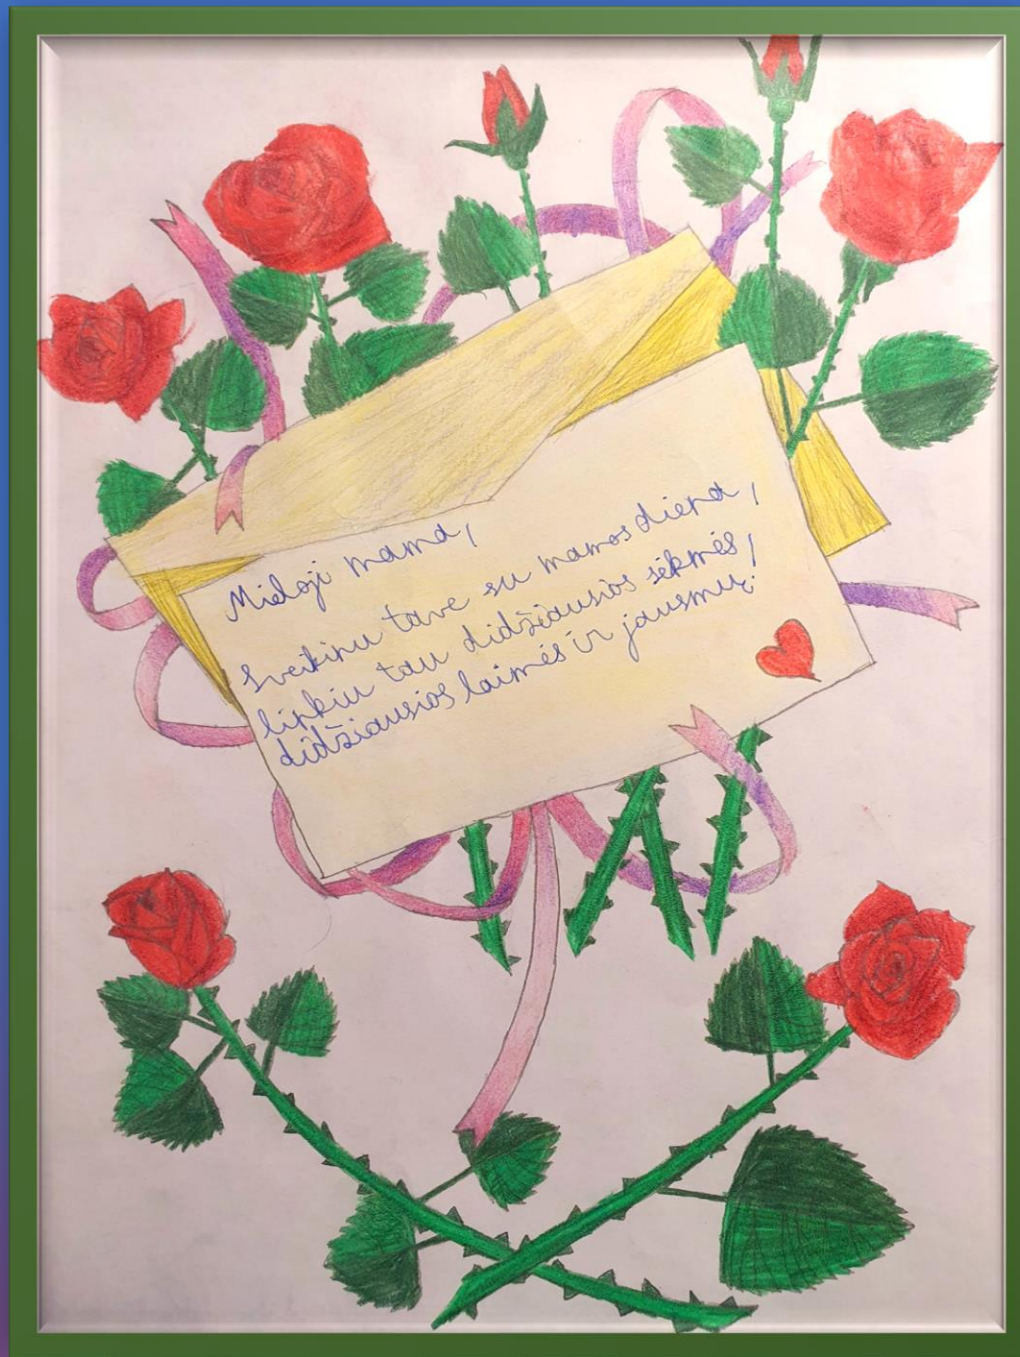 Mieloji mama,
Sveikinu tave su mamos diena,
linkiu tau didžiausios sėkmės,
didžiausios laimės ir jausmų.